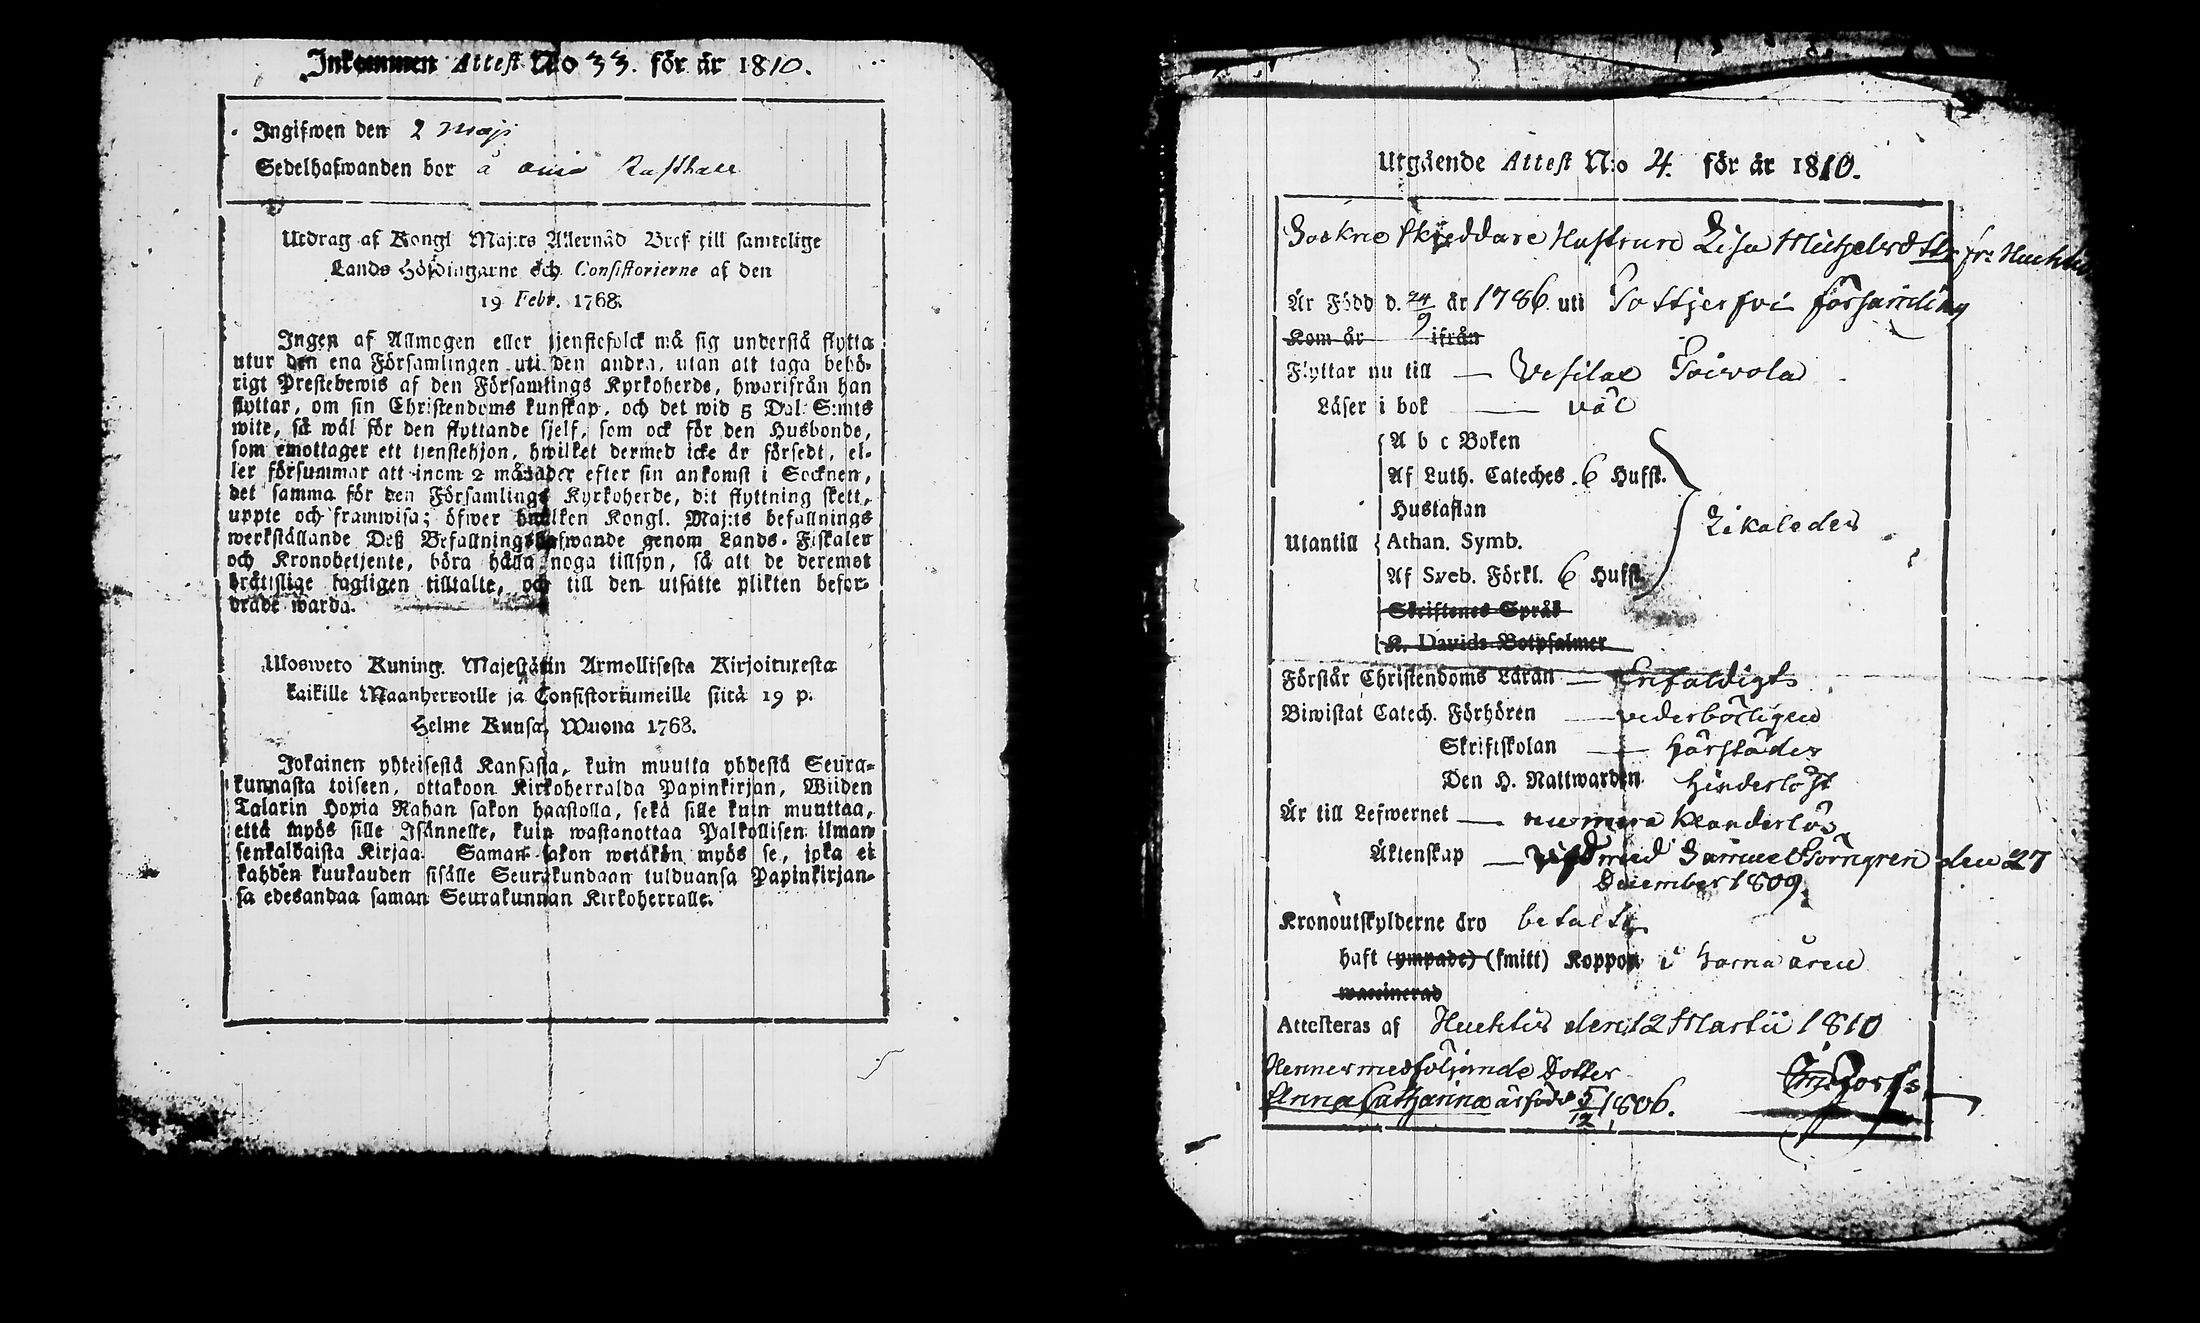 Inkommen Attest No 33. för år 1810.
Ingifwen den 2 Maji
Sedelhafwanden bor å
Utdrag af Kongl Maj:ts Allernåd Bref till samtelige
Lands Höfdingarne och Consistorierne af den
19 Febr. 1768.
Ingen af Allmogen eller tjenstefolck må sig understå flytta
utur den ena Församlingen uti den andra, utan att taga behö-
rigt Prestebewis af den Församlings Kyrkoherde, hwarifrån han
flyttar, om sin Christendoms kunskap, och det wid 5 Dal S:mts
wite, så wäl för den flyttande sjelf, som ock för den Husbonde,
som emottager ett tjenstehjon, hwilket dermed icke är försedt, el-
ler försummar att inom 2 månader efter sin ankomst i Socknen,
det samma för den Församlings Kyrkoherde, dit flyttning skett,
uppte och framwisa; öfwer hwilken Kongl. Maj:ts befallnings
werkställande Deß Befallningshafwande genom Lands-Fiskaler
och Kronobetjente, böra hålla noga tillsyn, så att de deremot
brättslige lagligen tilltalte, och till den utsatte plikten befor-
drade warda.
Ulosweto Kuning. Majestätin Armollisesta Kirjoituxesta
kaikille Maanherroille ja Consistoriumeille siitä 19 p.
Helme Kuusa, Wuona 1768.
Jokainen yhteisestä Kansasta, kuin muutta yhdestä Seura-
kunnasta toiseen, ottakoon Kirkoherralda Papinkirjan, Wiiden
Talarin Hopia Rahan sakon haastolla, sekä sille kuin muuttaa,
että myös sille Isännelle, kuin wastanottaa Palkollisen ilman
senkaldaista Kirjaa. Saman sakon wetäkön myös se, joka ei
kahden kuukauden sisälle Seurakundaan tulduansa Papinkirjan-
sa edesandaa saman Seurakunnan Kirkoherralle.
Utgående Attest N:o 4. för år 1810.
Sockne Skreddare Hustrun Lisa Michelsdttr fr:
Är Född d. 24/9 år 1786 uti församling
Kom år ifrån
Flyttar nu till — Vesilax Toivola
Läser i bok — väl
A b c Boken
Af Luth. Cateches. 6 Hufst.
Hustaflan
Utantill Athan. Symb.
Af Sveb. Förkl. 6 Hufst.
Likaledes
Skriftenes Språk
K. Davids Botpsalmer
Förstår Christendoms Läran — Enfaldigt
Biwistat Catech. Förhören — vederbörligen
Skriftskolan — härstädes
Den H. Nattwarden hinderlöst
Är till Lefwernet — numera klanderlös
Äktenskap — vigd med Samuel den 27
December 1809
Kronoutskylderne äro betalte
haft (ympade) (smitt) Koppor i barna åren
waccinerad
Attesteras af Huchtis den 12 Martii 1810
Hennes medföljande Dotter
Anna Catharina är född 5/12 1806.